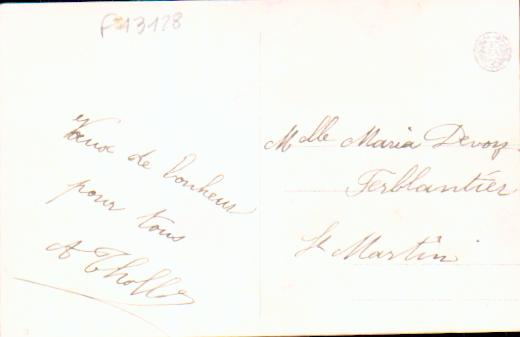 F 13128
Vœux de bonheur
pour tous
A Tholl
Mdlle Maria Devos
Ferblantier
St Martin